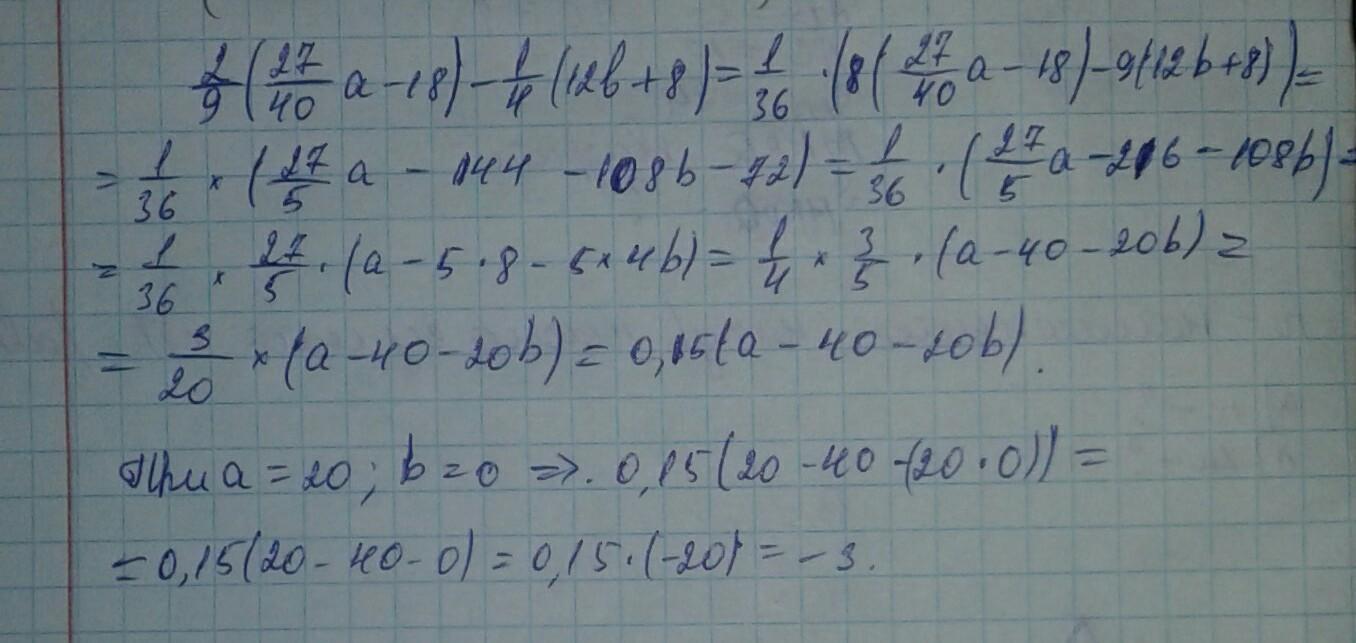 2/9(27/40 a - 18) - 1/4(12b + 8) = 1/36 · (8(27/40 a - 18) - 9(12b + 8)) =
= 1/36 × (27/5 a - 144 - 108b - 72) = 1/36 · (27/5 a - 216 - 108b) =
= 1/36 × 27/5 · (a - 5·8 - 5×4b) = 1/4 × 3/5 · (a - 40 - 20b) =
= 3/20 × (a - 40 - 20b) = 0,15(a - 40 - 20b).
При a = 20; b = 0 ⇒. 0,15(20 - 40 - (20·0)) =
= 0,15(20 - 40 - 0) = 0,15·(-20) = -3.